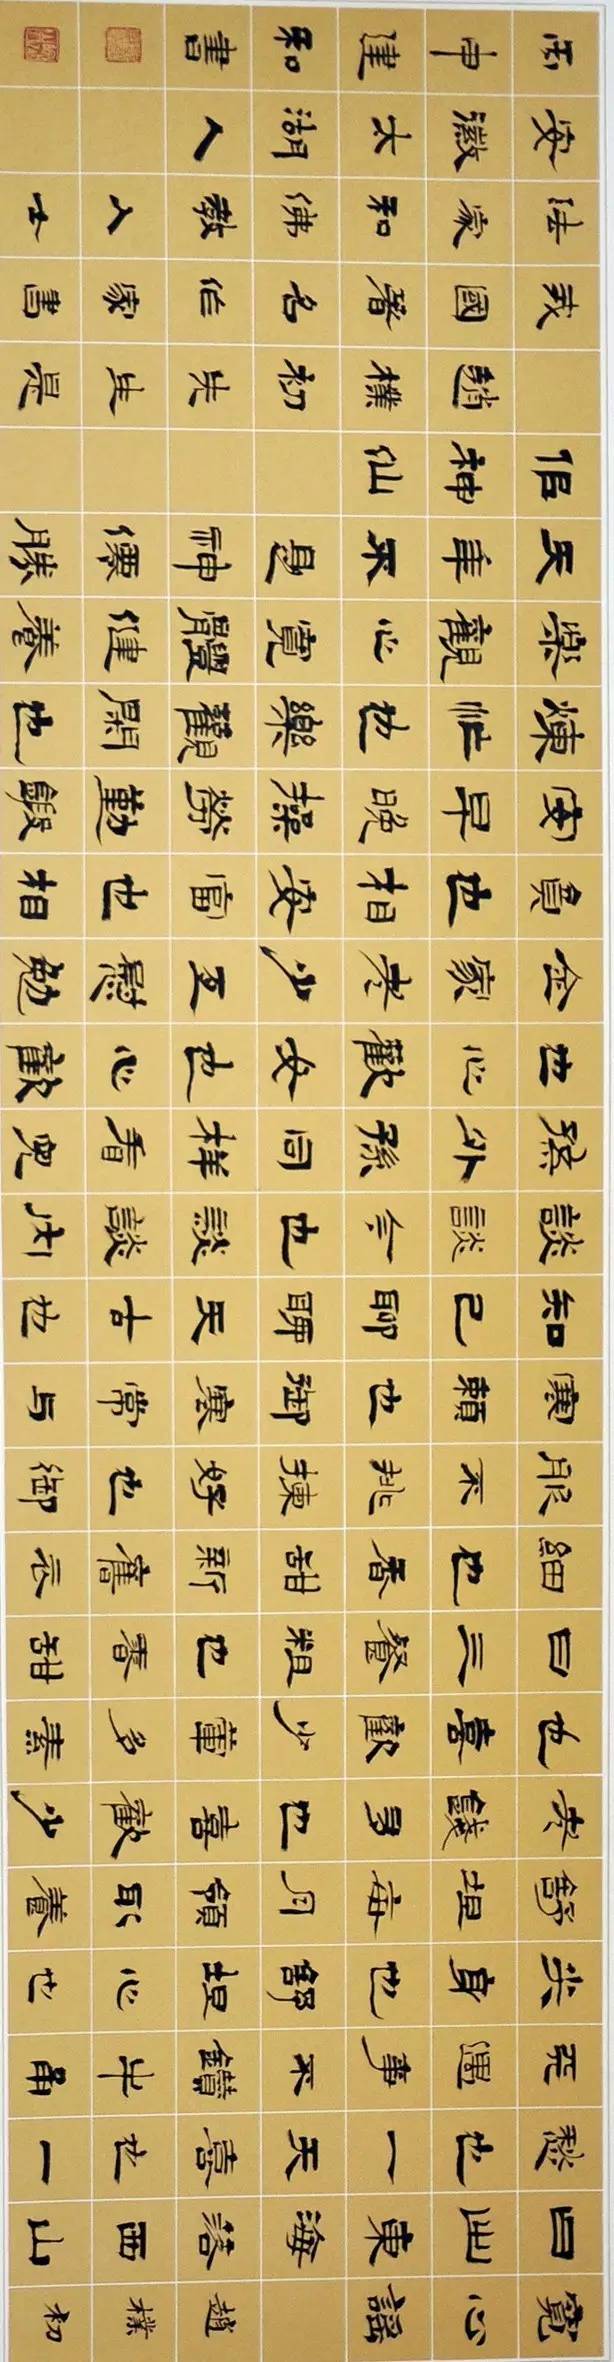 寬心謠 趙樸初
日出東海落西山
愁也一天喜也一
天遇事不鑽牛角
尖身也舒坦心也
舒坦每月領取養
老錢多也喜歡少
也喜歡少葷多素
日三餐粗也香甜
細也香甜新舊衣
服不挑揀好也御
寒賴也御寒常与
知己聊聊天古也
談談今也談談内
孫外孫同樣看兒
也心歡女也心歡
全家老少互慰勉
貧也相安富也相
安早晚操勞勤鍛
煉忙也樂觀閑也
樂觀心寬體健養
天年不是神僊勝
佀神仙
趙樸初先生是
我國著名作家書
法家和佛教人士
安徽太湖人
丙申建和書